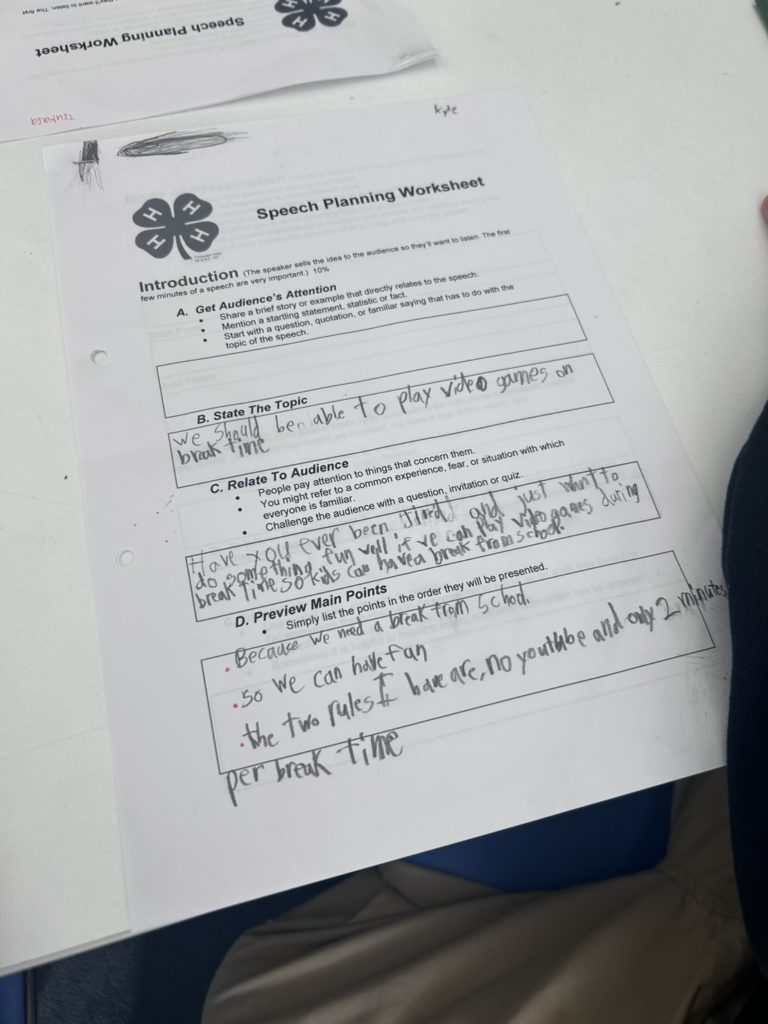 they'll want to listen. The first
Speech Planning Worksheet
H H
Tsukasa
Kyle
H H
H H
Speech Planning Worksheet
Introduction (The speaker sells the idea to the audience so they'll want to listen. The first
few minutes of a speech are very important.) 10%
A. Get Audience's Attention
• Share a brief story or example that directly relates to the speech.
• Mention a startling statement, statistic or fact.
• Start with a question, quotation, or familiar saying that has to do with the
topic of the speech.
B. State The Topic
we should be able to play video games on
break time
C. Relate To Audience
• People pay attention to things that concern them.
• You might refer to a common experience, fear, or situation with which
everyone is familiar.
• Challenge the audience with a question, invitation or quiz.
Have you ever been tired and just want to
do something fun well if we can play video games during
break time so kids can have a break from school.
D. Preview Main Points
• Simply list the points in the order they will be presented.
• Because we need a break from school.
• so we can have fun
• the two rules I have are, no youtube and only 2 minutes
per break time